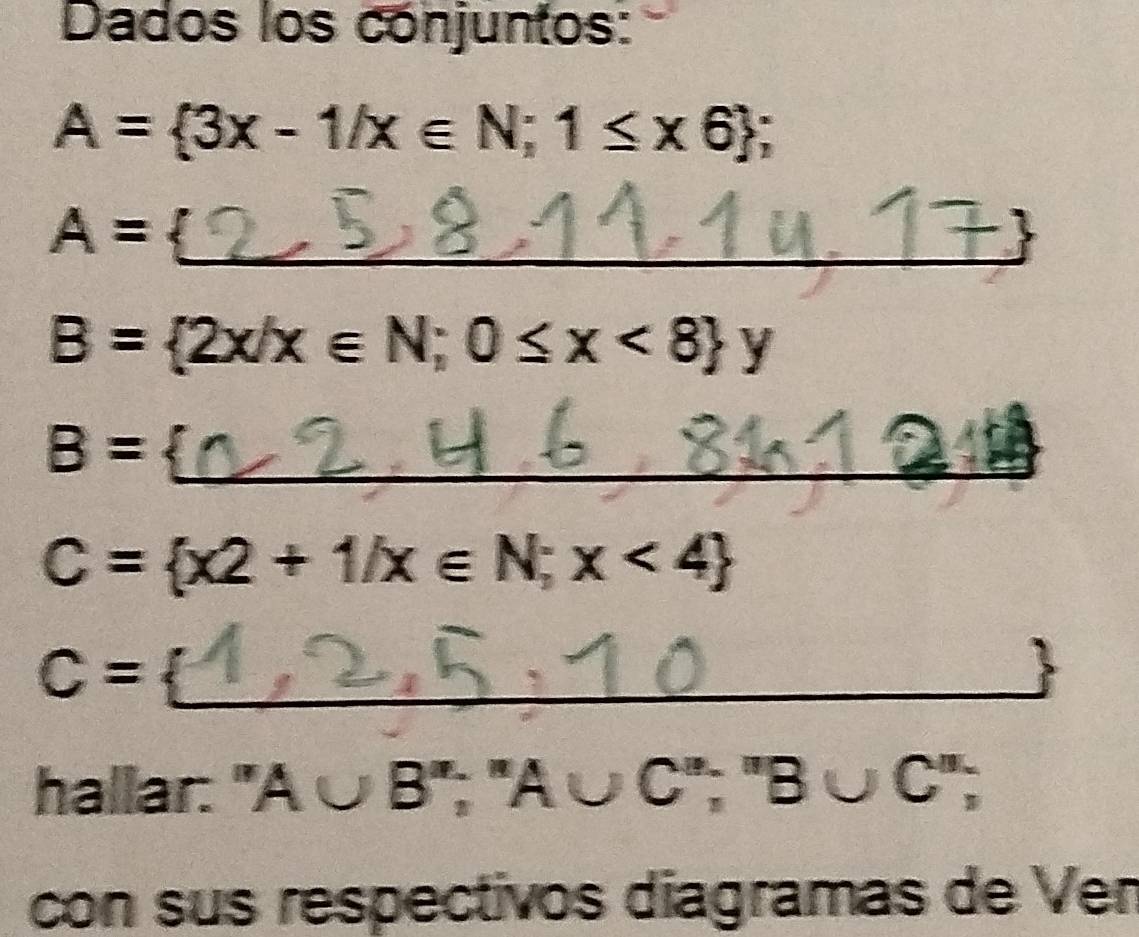 Dados los conjuntos:
A = {3x - 1/x ∈ N; 1 ≤ x 6};
A = {2, 5, 8, 11, 14, 17,}
B = {2x/x ∈ N; 0 ≤ x < 8} y
B = {0, 2, 4, 6, 8, 10, 12, 14}
C = {x2 + 1/x ∈ N; x < 4}
C = {1, 2, 5, 10}
hallar: "A ∪ B"; "A ∪ C"; "B ∪ C";
con sus respectivos diagramas de Ven